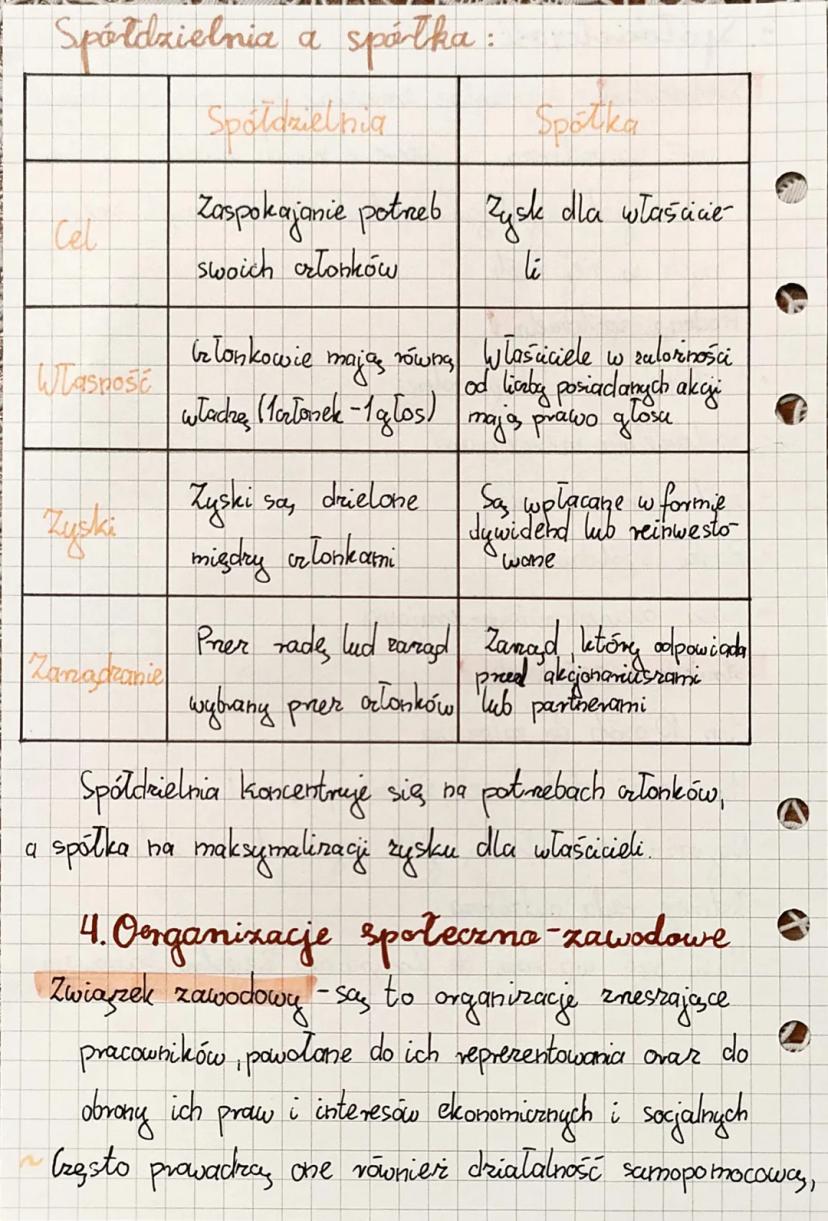 Spółdzielnia a spółka:
Spółdzielnia Spółka
Cel
Zaspokajanie potrzeb
swoich członków
Zysk dla właścicie-
li
Własność
Członkowie mają równą
władzę (1członek-1głos)
Właściciele w zależności
od liczby posiadanych akcji
mają prawo głosu
Zyski
Zyski są dzielone
między członkami
Są wpłacane w formie
dywidend lub reinwesto-
wane
Zarządzanie
Przez radę lud zarząd
wybrany przez członków
Zarząd, który odpowiada
przed akcjonariuszami
lub partnerami
Spółdzielnia koncentruje się na potrzebach członków,
a spółka na maksymalizacji zysku dla właścicieli.
4. Oerganizacje społeczno-zawodowe
Związek zawodowy - są to organizacje zrzeszające
pracowników, powołane do ich reprezentowania oraz do
obrony ich praw i interesów ekonomicznych i socjalnych
~ Często prowadzą one również działalność samopomocową,